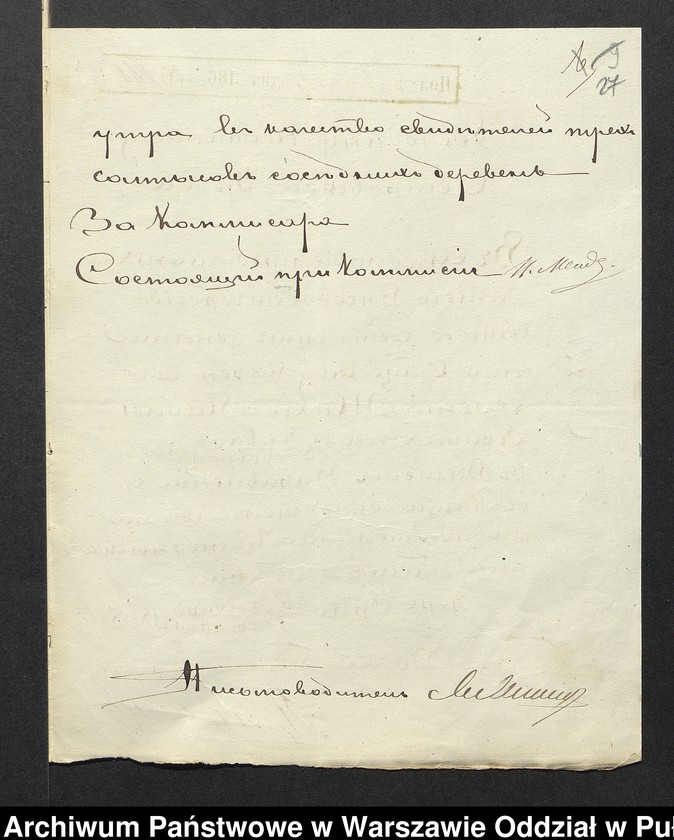 9
27
утра въ качество свидѣтелей трехъ
солтысовъ сосѣднихъ деревень
За Коммисара
Состоящій при Коммисіи
Письмоводитель
Archiwum Państwowe w Warszawie Oddział w Puł